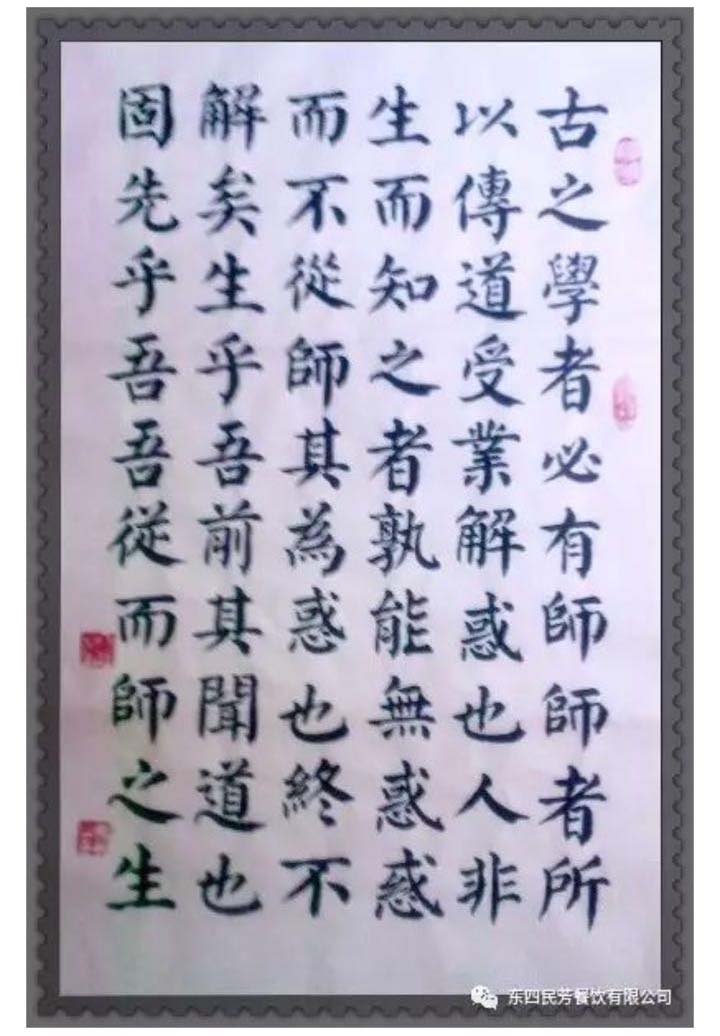 古之學者必有師師者所
以傳道受業解惑也人非
生而知之者孰能無惑惑
而不從師其為惑也終不
解矣生乎吾前其聞道也
固先乎吾吾從而師之生
东四民芳餐饮有限公司